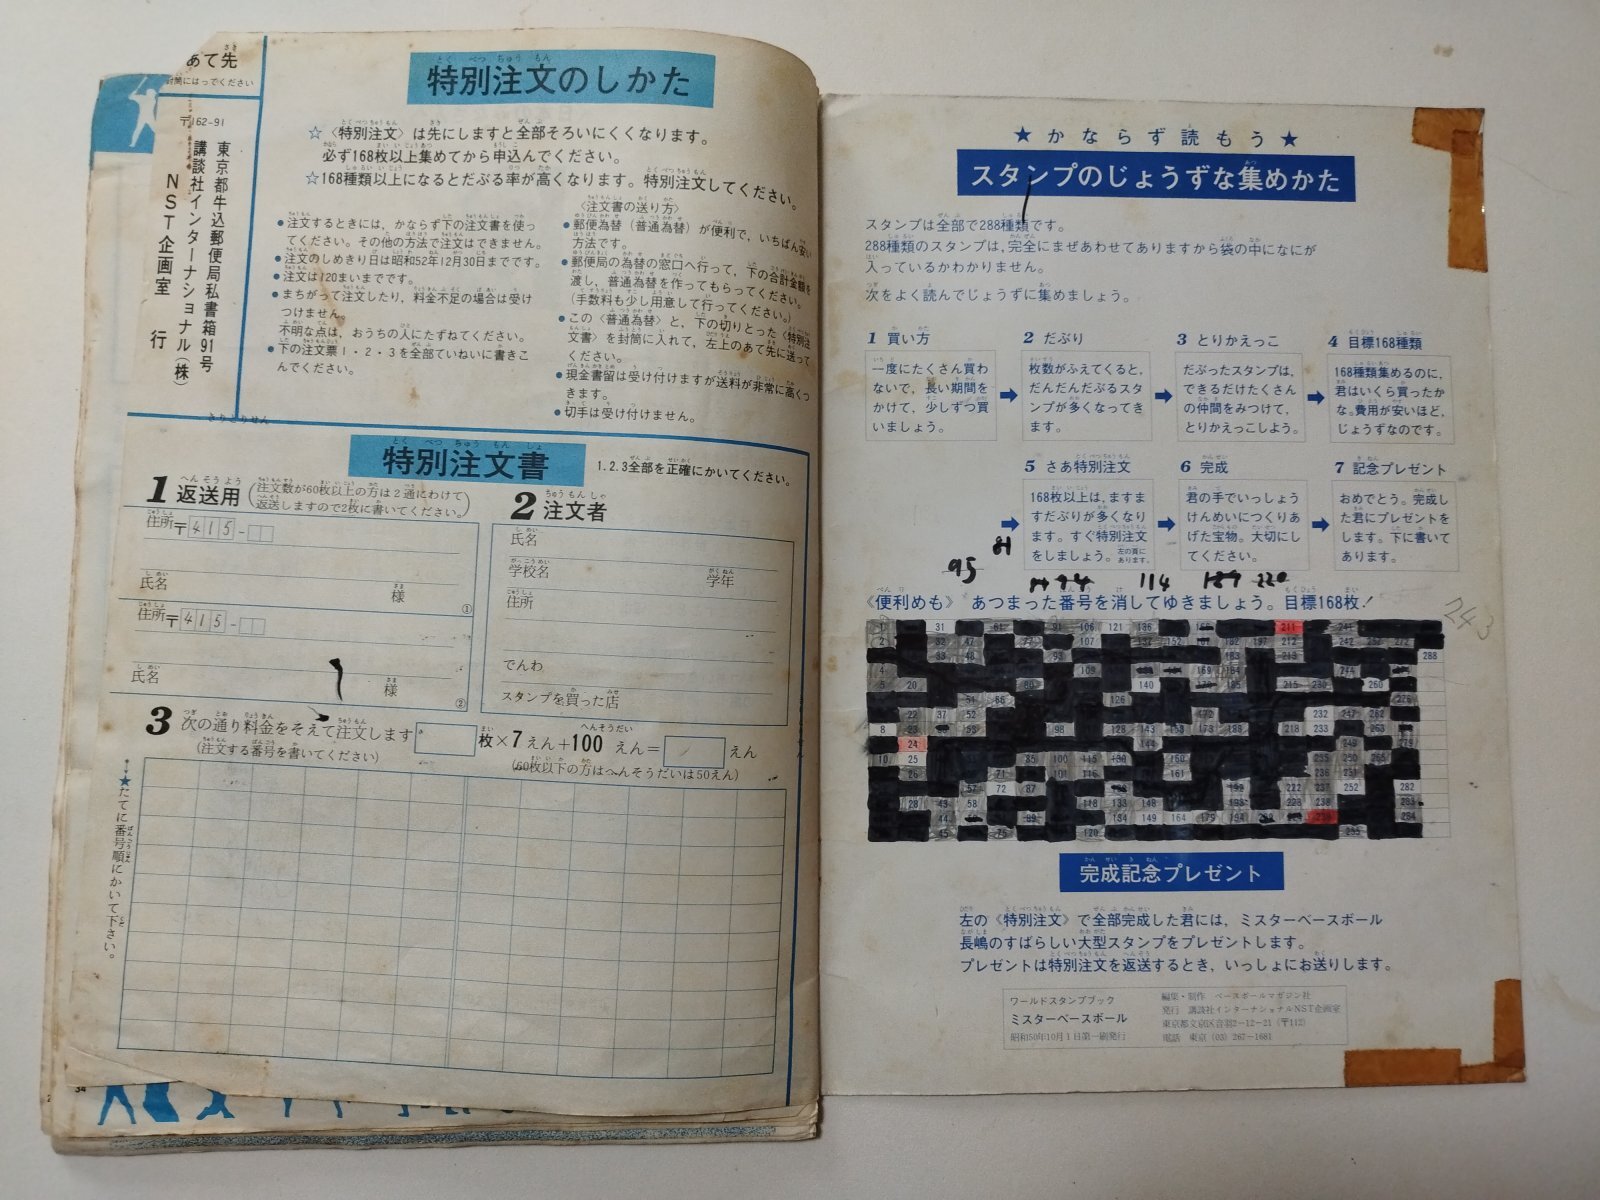 あて先
封筒にはってください
〒162-91
東京都牛込郵便局私書箱91号
講談社インターナショナル(株)
NST企画室 行
特別注文のしかた
☆〈特別注文〉は先にしますと全部そろいにくくなります。
必ず168枚以上集めてから申込んでください。
☆168種類以上になるとだぶる率が高くなります。特別注文してください。
●注文するときには、かならず下の注文書を使っ
てください。その他の方法で注文はできません。
●注文のしめきり日は昭和52年12月30日までです。
●注文は120まいまでです。
●まちがって注文したり、料金不足の場合は受け
つけません。
不明な点は、おうちの人にたずねてください。
●下の注文票1・2・3を全部ていねいに書きこ
んでください。
〈注文書の送り方〉
●郵便為替(普通為替)が便利で、いちばん安い
方法です。
●郵便局の為替の窓口へ行って、下の合計金額を
渡し、普通為替を作ってもらってください。
(手数料も少し用意して行ってください。)
●この〈普通為替〉と、下の切りとった〈特別注
文書〉を封筒に入れて、左上のあて先に送って
ください。
●現金書留は受け付けますが送料が非常に高くつ
きます。
●切手は受け付けません。
きりとりせん
特別注文書
1.2.3全部を正確にかいてください。
1 返送用 (注文数が60枚以上の方は2通にわけて
返送しますので2枚に書いてください。)
住所〒415-
氏名 様 ①
住所〒415-
氏名 様 ②
2 注文者
氏名
学校名 学年
住所
でんわ
スタンプを買った店
3 次の通り料金をそえて注文します 枚×7えん+100えん= えん
へんそうだい
(注文する番号を書いてください)
(60枚以下の方はへんそうだいは50えん)
★たてに番号順にかいて下さい。
34
★かならず読もう★
スタンプのじょうずな集めかた
スタンプは全部で288種類です。
288種類のスタンプは、完全にまぜあわせてありますから袋の中になにが
入っているかわかりません。
次をよく読んでじょうずに集めましょう。
1 買い方
一度にたくさん買わ
ないで、長い期間を
かけて、少しずつ買
いましょう。
2 だぶり
枚数がふえてくると、
だんだんだぶるスタ
ンプが多くなってき
ます。
3 とりかえっこ
だぶったスタンプは、
できるだけたくさん
の仲間をみつけて、
とりかえっこしよう。
4 目標168種類
168種類集めるのに、
君はいくら買ったか
な。費用が安いほど、
じょうずなのです。
5 さあ特別注文
168枚以上は、ますま
すだぶりが多くなり
ます。すぐ特別注文
をしましょう。左の頁に
あります。
6 完成
君の手でいっしょう
けんめいにつくりあ
げた宝物。大切にし
てください。
7 記念プレゼント
おめでとう。完成し
た君にプレゼントを
します。下に書いて
あります。
81
95 114 220
《便利めも》 あつまった番号を消してゆきましょう。目標168枚！
243
31 61 91 106 121 136 211 241
2 32 47 107 137 152 182 197 212 242
33 48 93 213 288
4 109 169 184 244
5 20 140 185 215 230 260
51 66 126
22 37 52 172 232 247 262
8 23 98 128 143 158 173 188 218 233
24 144 249
10 25 85 100 115 130 160 235 250 265
26 71 101 116 161 236 251
57 72 87 192 222 237 252 282
28 43 58 118 133 148 193 223 238 283
44 89 134 149 164 179 194 239 284
45 120 255
完成記念プレゼント
左の《特別注文》で全部完成した君には、ミスターベースボール
長嶋のすばらしい大型スタンプをプレゼントします。
プレゼントは特別注文を返送するとき、いっしょにお送りします。
ワールドスタンプブック
ミスターベースボール
昭和50年10月1日第一刷発行
編集・制作 ベースボールマガジン社
発行 講談社インターナショナルNST企画室
東京都文京区音羽2-12-21 (〒112)
電話 東京 (03) 267-1681